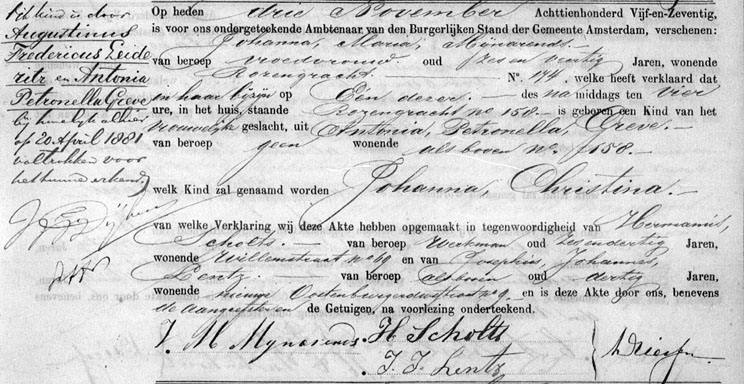 Dit kind is door
Augustinus
Fredericus Leide
ritz en Antonia
Petronella Greve
bij huwelijk alhier
op 20 April 1881
voltrokken voor
het hunne erkend
Op heden drie November Achttienhonderd Vijf-en-Zeventig,
is voor ons ondergeteekende Ambtenaar van den Burgerlijken Stand der Gemeente Amsterdam, verschenen:
Johanna, Maria, Mynarends.—
van beroep vroedvrouw oud zes en veertig Jaren, wonende
Rozengracht No. 174, welke heeft verklaard dat
in haar bijzijn op Eén dezer.— des na middags ten vier
ure, in het huis, staande Rozengracht no 158.— is geboren een Kind van het
vrouwelijk geslacht, uit Antonia, Petronella, Greve.—
van beroep geen wonende als boven no. 158.—
welk Kind zal genaamd worden Johanna, Christina.—
van welke Verklaring wij deze Akte hebben opgemaakt in tegenwoordigheid van Hermanus,
Scholts.— van beroep Werkman oud zesendertig Jaren,
wonende Willemstraat no 69 en van Josephus, Johannes,
Lentz.— van beroep als boven oud dertig Jaren,
wonende nieuwe Oostenburgerdwarsstraat no 9.— en is deze Akte door ons, benevens
de aangeefster en de Getuigen, na voorlezing onderteekend.
J. M Mynarends. H Scholts
J. J. Lentz